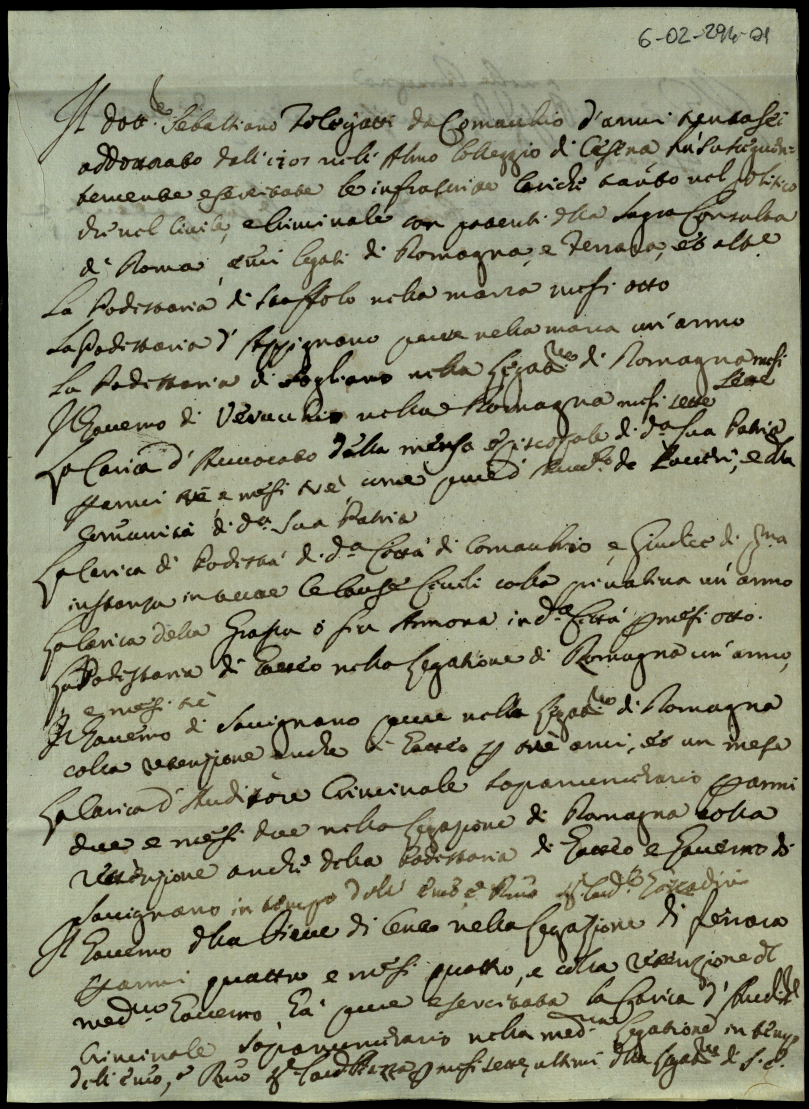 6-02-294-01
Il dott.e Sebastiano Tologatti da Comacchio d'anni trentasei
addottorato dell 1701 nell' Almo Colleggio di Cesena, hà
esercitate le infrascritte Cariche tanto nel Politico
che nel Civile, e Criminale con patenti della Sagra Consulta
di Roma, legati di Romagna, e Ferrara, et alt.e
La Podestaria di Staffolo nella marca mesi otto
La Podestaria d'Appignano pure nella marca un'anno
La Podestaria di Sogliano nella Legat.ne di Romagna mesi
sette
Il Governo di Verucchio nella Romagna mesi sette
La Carica d'Avvocato della mensa episcopale di d.a sua Patria
p anni trè e mesi trè, come pure d' Avvo.to de Poveri, e della
Comunità di d.a sua Patria
La Carica di Podestà di d.a Città di Comacchio e Giudice di p.ma
instanza in tutte le Cause Civili colla privativa un'anno
La Carica della Grascia ò sia Annona in d.a Città p mesi otto.
La Podestaria di Gatteo nella Legatione di Romagna un'anno,
e mesi trè
Il Governo di Savignano pure nella Legat.ne di Romagna
colla retenzione anche di Gatteo p trè anni, et un mese
La Carica d'Auditore Criminale sopranumerario p anni
due e mesi due nella Legazione di Romagna colla
retenzione anche della Podestaria di Gatteo e Governo di
Savignano in tempo dell' Emo e Rmo Sig.r Card.le
Il Governo della Pieve di Cento nella Legazione di Ferrara
p anni quattro e mesi quattro, e colla retenzione del
med.mo Governo, hà pure esercitata la Carica d'Audit.e
Criminale sopranumerario nella med.ma Legatione in tempo
dell' Emo, e Rmo Sig.r Card. Piazza p mesi sette, ultimi della Legat.ne di S. E.